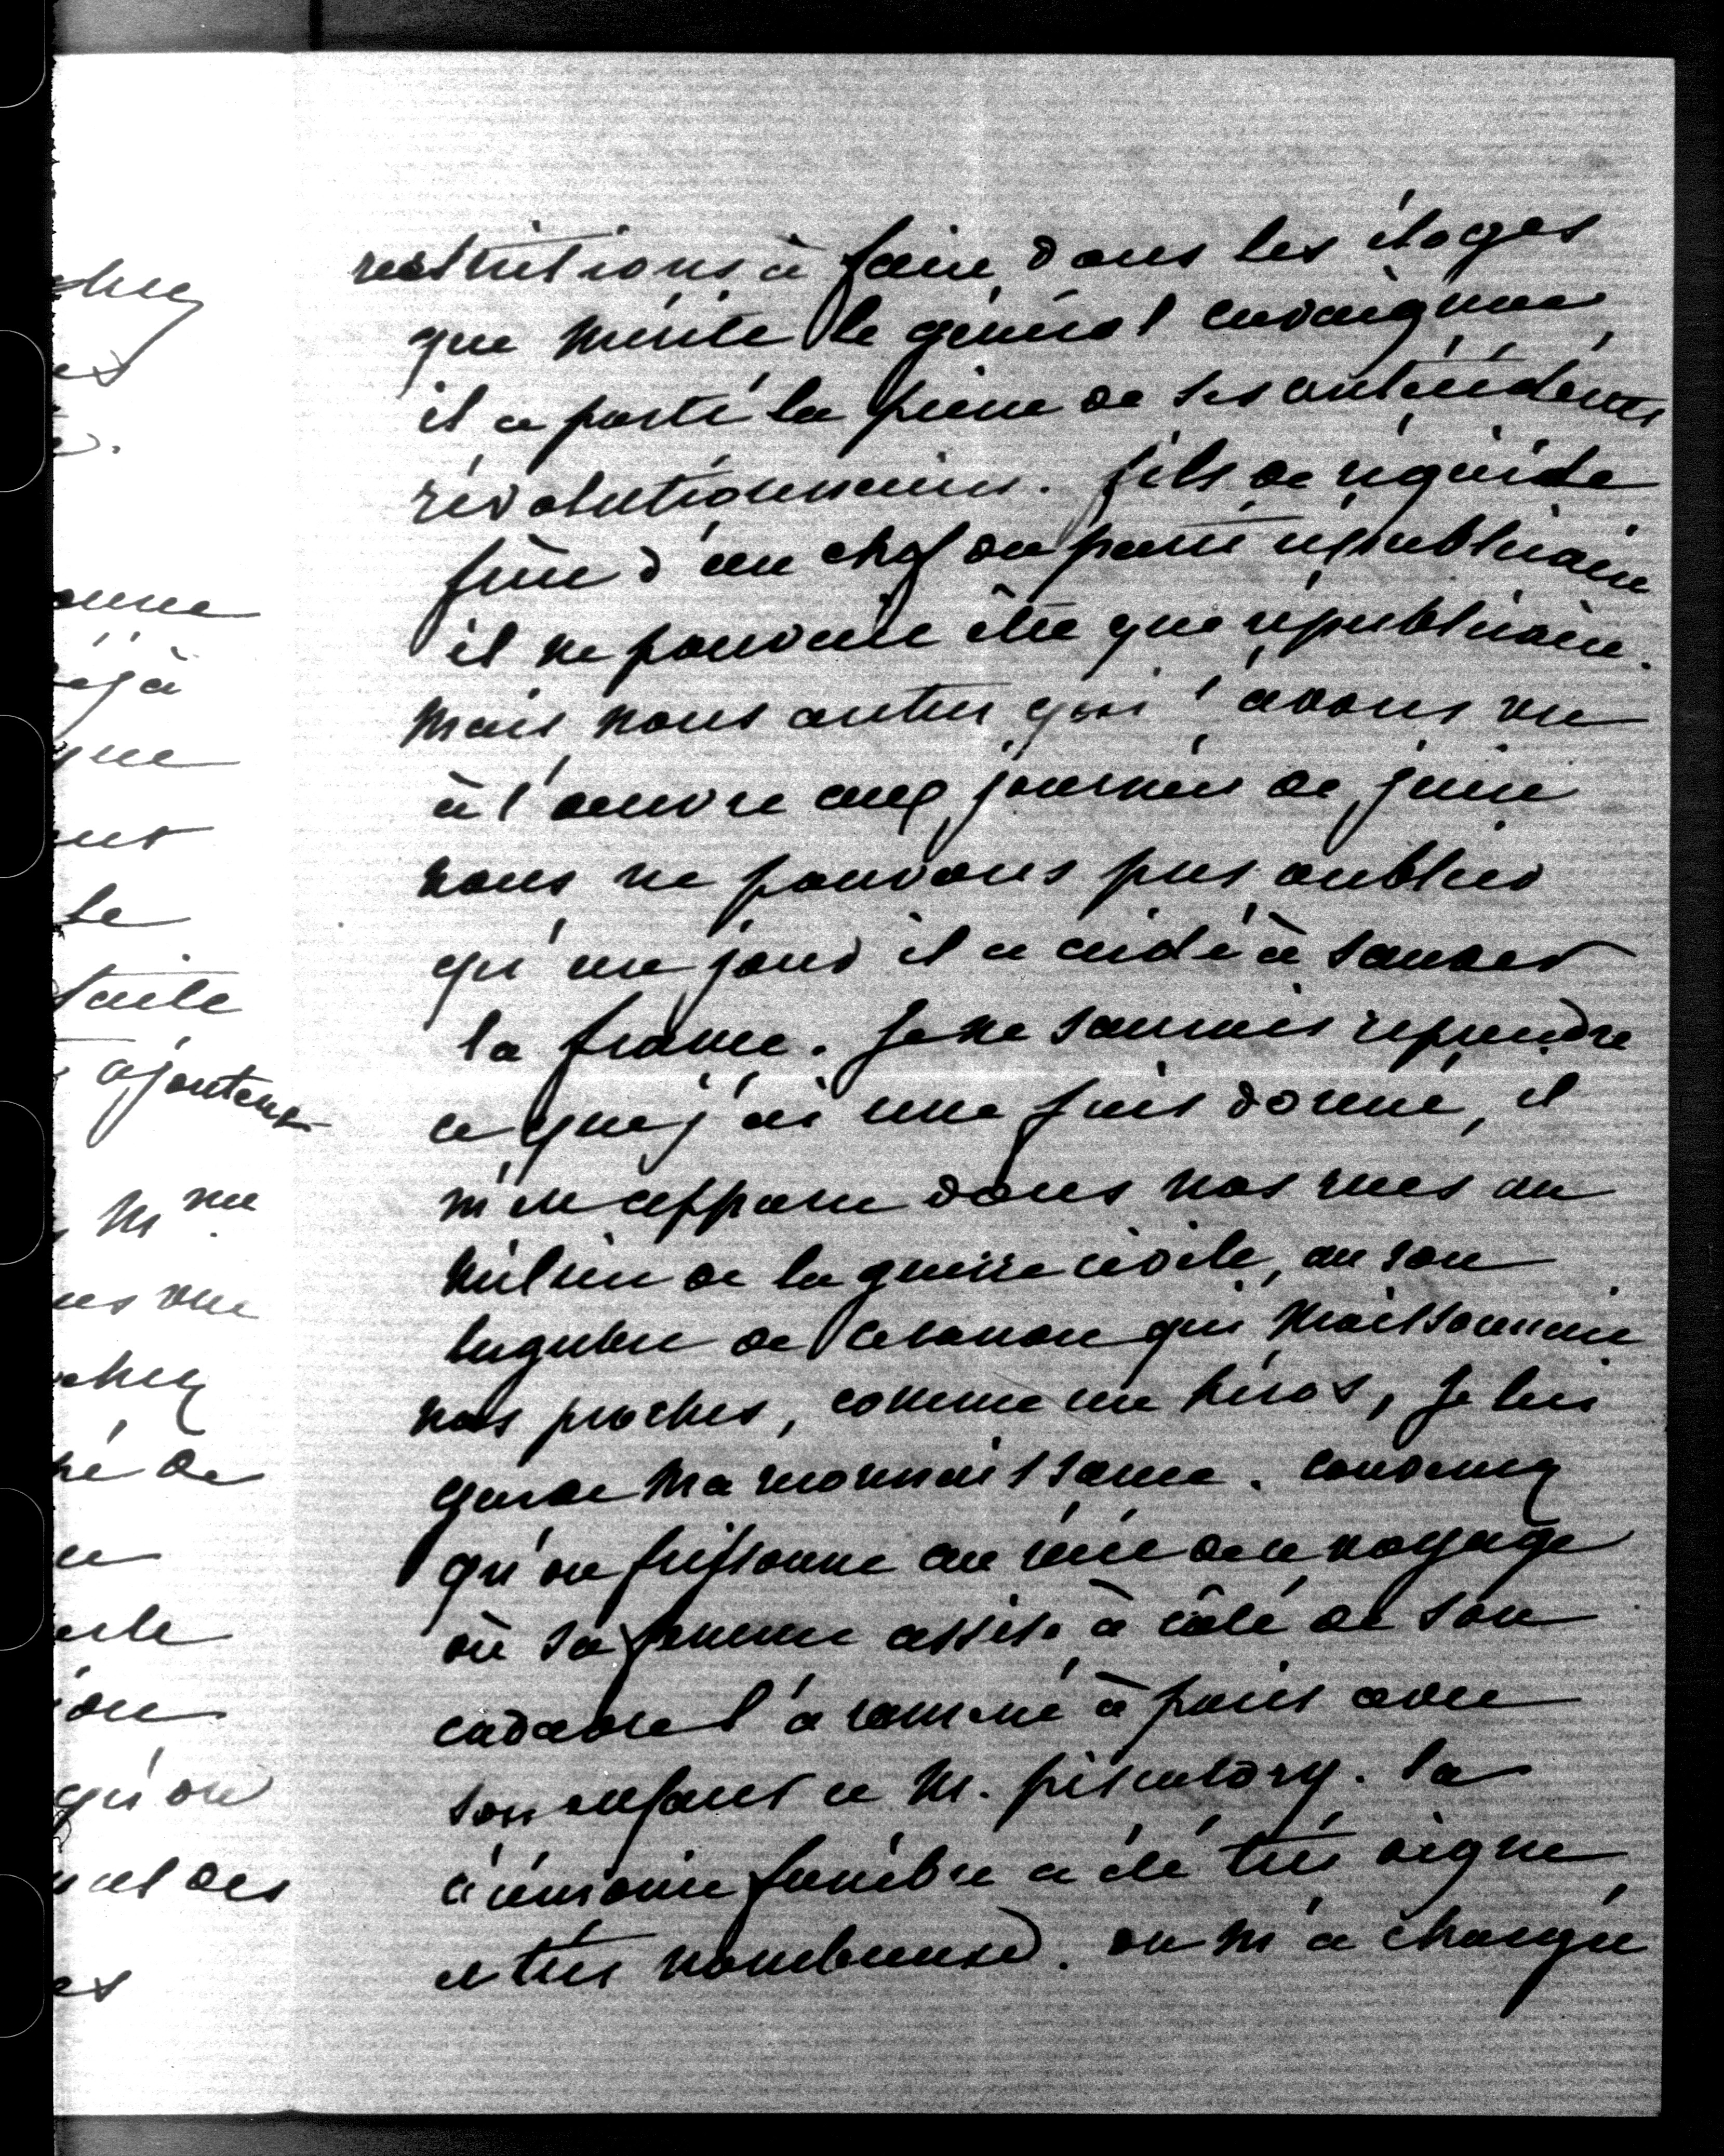 restrictions à faire dans les éloges
que mérite le général cavaignac,
il a porté la peine de ses antécédents
révolutionnaires. fils de régicide
frère d'un chef du parti républicain
il ne pouvait être que républicain.
mais nous autres qui l'avons vu
à l'oeuvre aux journées de juin
nous ne pouvons pas oublier
qu'un jour il a aidé à sauver
la france. Je ne saurais reprendre
ce que j'ai une fois donné, il
m'en apparu dans nos rues au
milieu de la guerre civile, au son
lugubre de ce canon qui moissonnait
nos proches, comme un héros, je lui
garde ma reconnaissance. convenez
qu'on frissonne au récit de ce voyage
où sa femme assise à côté de son
cadavre l'a ramené à paris avec
son enfant et M. piscatory. la
cérémonie funèbre a été très digne
et très nombreuse. on m'a chargée
chez
es
éjà
que
le
ajouterez
Mme
chez
de
qu'on
des
es